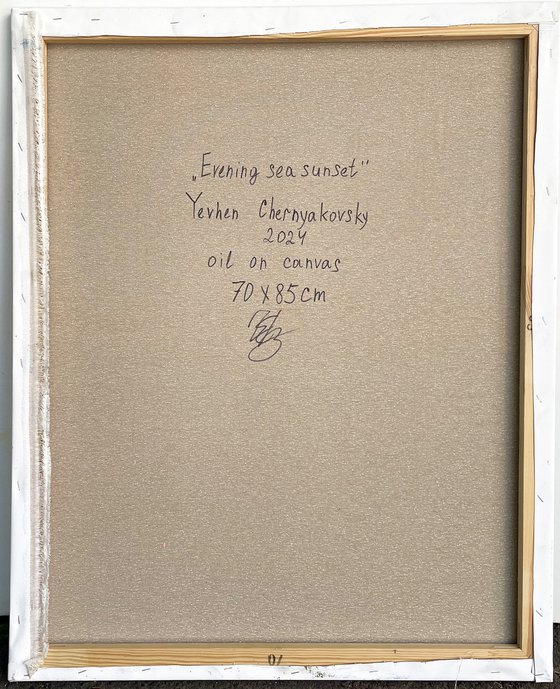 „Evening sea sunset"
Yevhen Chernyakovsky
2024
oil on canvas
70 x 85 cm